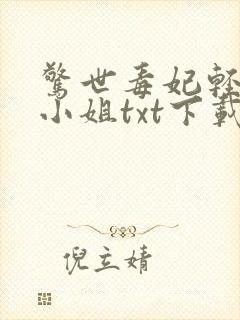 驚世毒妃輕
小姐txt下載
倪立婧